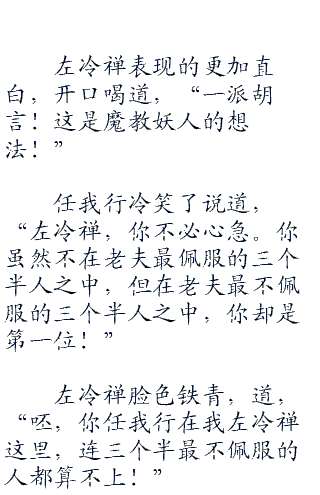 左冷禅表现的更加直
白，开口喝道，“一派胡
言！这是魔教妖人的想
法！”
任我行冷笑了说道，
“左冷禅，你不必心急。你
虽然不在老夫最佩服的三个
半人之中，但在老夫最不佩
服的三个半人之中，你却是
第一位！”
左冷禅脸色铁青，道，
“呸，你任我行在我左冷禅
这里，连三个半最不佩服的
人都算不上！”